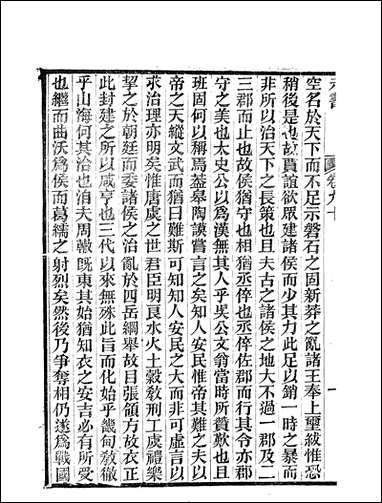 卷九十
一
空名於天下而不足示磐石之固新莽之亂諸王奉上璽紱惟恐
稍後是也故賈誼欲眾建諸侯而少其力此足以懲一時之暴而
非所以治天下之長策也且夫古之諸侯之地大不過一郡及二
三郡而止也故侯猶守也相猶丞倅也丞倅佐郡而行其令亦郡
守之美也太史公以爲漢無其人乎吳公文翁當時所贊歎也且
班固何以稱焉蓋皋陶謨嘗言之矣知人安民惟帝其難之夫以
帝之天縱文武而猶曰難斯可知知人安民之大而非可虛言以
求治理亦明矣惟唐虞之世君臣明良水火土穀敎刑工虞禮樂
挈之於朝廷而委諸侯之治亂於四岳綱舉故目張領方故衣正
此封建之所以咸亨也三代以來無殊此旨而化始乎畿甸敎徹
乎山海何其洽也洎夫周轍旣東其始猶知衣之安吉必有所受
也繼而曲沃爲侯而葛繻之射烈矣然後乃爭奪相仍遂爲戰國